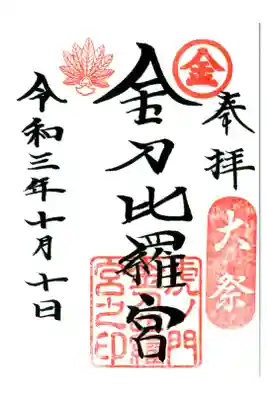 奉拝
大祭
金
金刀比羅宮
虎ノ門
金刀比羅
宮之印
令和三年十月十日